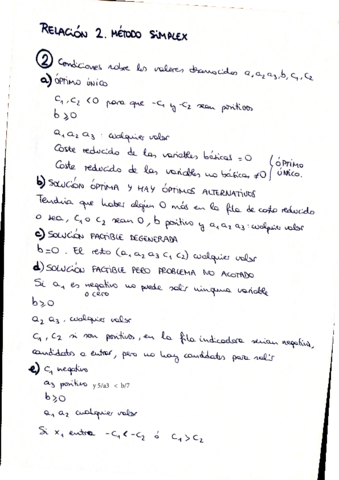 RELACIÓN 2. MÉTODO SIMPLEX
② Condiciones sobre los valores desconocidos a₁ a₂ a₃, b, c₁, c₂
a) ÓPTIMO ÚNICO
c₁, c₂ < 0 para que -c₁ y -c₂ sean positivos
b ≥ 0
a₁ a₂ a₃ : cualquier valor
Coste reducido de las variables básicas = 0
Coste reducido de las variables no básicas ≠ 0 } ÓPTIMO ÚNICO.
b) SOLUCIÓN ÓPTIMA Y HAY ÓPTIMOS ALTERNATIVOS
Tendría que haber algún 0 más en la fila de coste reducido
o sea, c₁ o c₂ sean 0, b positivo y a₁ a₂ a₃ : cualquier valor
c) SOLUCIÓN FACTIBLE DEGENERADA
b = 0. El resto (a₁ a₂ a₃ c₁ c₂) cualquier valor
d) SOLUCIÓN FACTIBLE PERO PROBLEMA NO ACOTADO
Si a₁ es negativo o cero no puede salir ninguna variable
b ≥ 0
a₂ a₃ . cualquier valor
c₁, c₂ si son positivos, en la fila indicadora serían negativos,
candidatos a entrar, pero no hay candidatos para salir
e) c₁ negativo
a₃ positivo y 5/a3 < b/7
b ≥ 0
a₁ a₂ cualquier valor
Si x₁ entra -c₁ < -c₂ ó c₁ > c₂